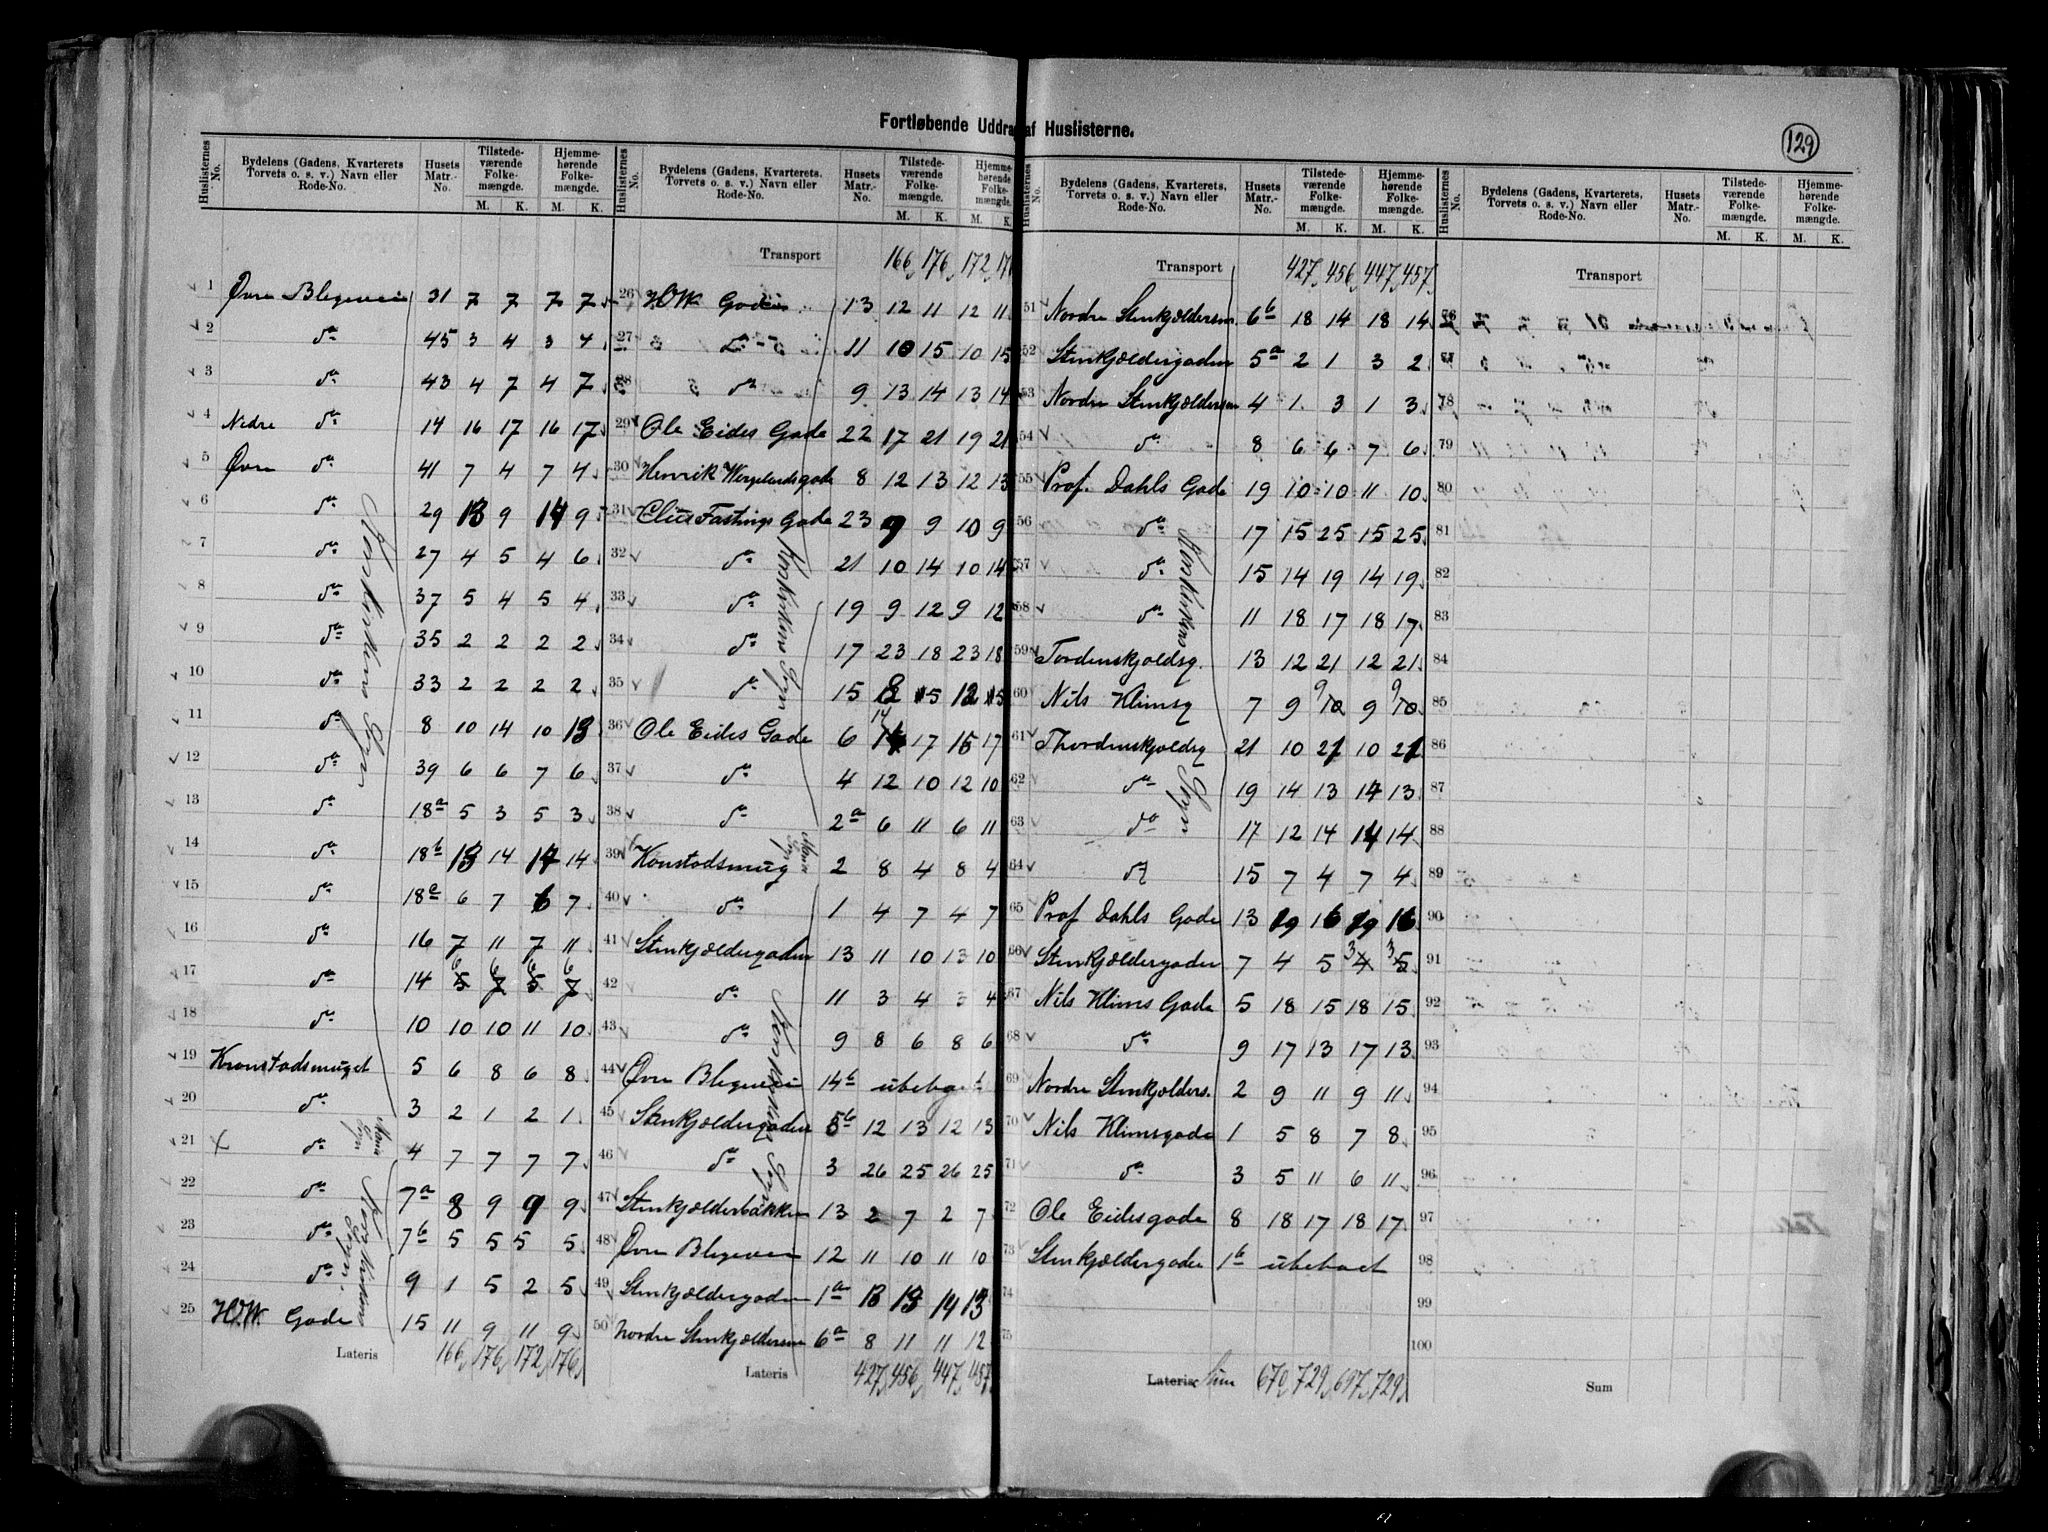 Fortløbende Uddrag af Huslisterne.
129
Huslisternes No. Bydelens (Gadens, Kvarterets Torvets o. s. v.) Navn eller Rode-No. Husets Matr.-No. Tilstedeværende Folkemængde. M. K. Hjemmehørende Folkemængde. M. K.
1 Øvre Blegevei 31 7 7 7 7
2 do 45 3 4 3 4
3 do 43 4 7 4 7
4 Nedre do 14 16 17 16 17
5 Øvre do 41 7 4 7 4
6 do 29 13 9 14 9
7 do 27 4 5 4 6
8 do 37 5 4 5 4
9 do 35 2 2 2 2
10 do 33 2 2 2 2
11 do 8 10 14 10 13
12 do 39 6 6 7 6
13 do 18a 5 3 5 3
14 do 18b 13 14 14 14
15 do 18a 6 7 6 7
16 do 16 7 11 7 11
17 do 14 6 6 6 6
18 do 10 10 10 11 10
19 Kronstadsmuget 5 6 8 6 8
20 do 3 2 1 2 1
21 do 4 7 7 7 7
22 do 7a 8 9 9 9
23 do 7b 5 5 5 5
24 do 9 1 5 2 5
25 H.W. Gade 15 11 9 11 9
Lateris 166 176 172 176
Korskirkens Sogn
Maria Sogn
Korskirkens Sogn
Huslisternes No. Bydelens (Gadens, Kvarterets, Torvets o. s. v.) Navn eller Rode-No. Husets Matr.-No. Tilstedeværende Folkemængde. M. K. Hjemmehørende Folkemængde. M. K.
Transport 166 176 172
26 H.W. Gade 13 12 11 12 11
27 do 11 10 15 10 15
28 do 9 13 14 13 14
29 Ole Eides Gade 22 17 21 19 21
30 Henrik Wergelandsgade 8 12 13 12 13
31 Claus Fastings Gade 23 9 9 10 9
32 do 21 10 14 10 14
33 do 19 9 12 9 12
34 do 17 23 18 23 18
35 do 15 12 15 12 15
36 Ole Eides Gade 6 14 17 15 17
37 do 4 12 10 12 10
38 do 2a 6 11 6 11
39 Konstadsmug 2 8 4 8 4
40 do 1 4 7 4 7
41 Stenkjældergaden 13 11 10 13 10
42 do 11 3 4 3 4
43 do 9 8 6 8 6
44 Øvre Blegevei 14b ubebyget
45 Stenkjældergaden 5b 12 13 12 13
46 do 3 26 25 26 25
47 Stenkjælderbakken 13 2 7 2 7
48 Øvre Blegevei 12 11 10 11 10
49 Stenkjældergaden 1a 13 13 14 13
50 Nordre Stenkjældersm 6a 8 11 11 12
Lateris 427 456 447 457
Korskirkens Sogn
Maria Sogn
Korskirkens Sogn
Huslisternes No. Bydelens (Gadens, Kvarterets, Torvets o. s. v.) Navn eller Rode-No. Husets Matr.-No. Tilstedeværende Folkemængde. M. K. Hjemmehørende Folkemængde. M. K.
Transport 427 456 447 457
51 Nordre Stenkjældersm. 6b 18 14 18 14
52 Stenkjældergaden 5a 2 1 3 2
53 Nordre Stenkjældersm 4 1 3 1 3
54 do 8 6 6 7 6
55 Prof. Dahls Gade 19 10 10 11 10
56 do 17 15 25 15 25
57 do 15 14 19 14 19
58 do 11 18 17 18 17
59 Tordenskjoldsg. 13 12 21 12 21
60 Nils Klimsg 7 9 9 9 9
61 Thordenskjoldsg 21 10 21 10 21
62 do 19 14 13 14 13
63 do 17 12 14 14 14
64 do 15 7 4 7 4
65 Prof Dahls Gade 13 19 16 19 16
66 Stenkjældergaden 7 4 5 3 3
67 Nils Klims Gade 5 18 15 18 15
68 do 9 17 13 17 13
69 Nordre Stenkjælders. 2 9 11 9 11
70 Nils Klimsgade 1 5 8 7 8
71 do 3 5 11 6 11
72 Ole Eidesgade 8 18 17 18 17
73 Stenkjældergaden 1b ubeboet
74
75
Lateris Sum 670 729 697 729
Korskirkens Sogn
Huslisternes No. Bydelens (Gadens, Kvarterets, Torvets o. s. v.) Navn eller Rode-No. Husets Matr.-No. Tilstedeværende Folkemængde. M. K. Hjemmehørende Folkemængde. M. K.
Transport
76
77
78
79
80
81
82
83
84
85
86
87
88
89
90
91
92
93
94
95
96
97
98
99
100
Sum